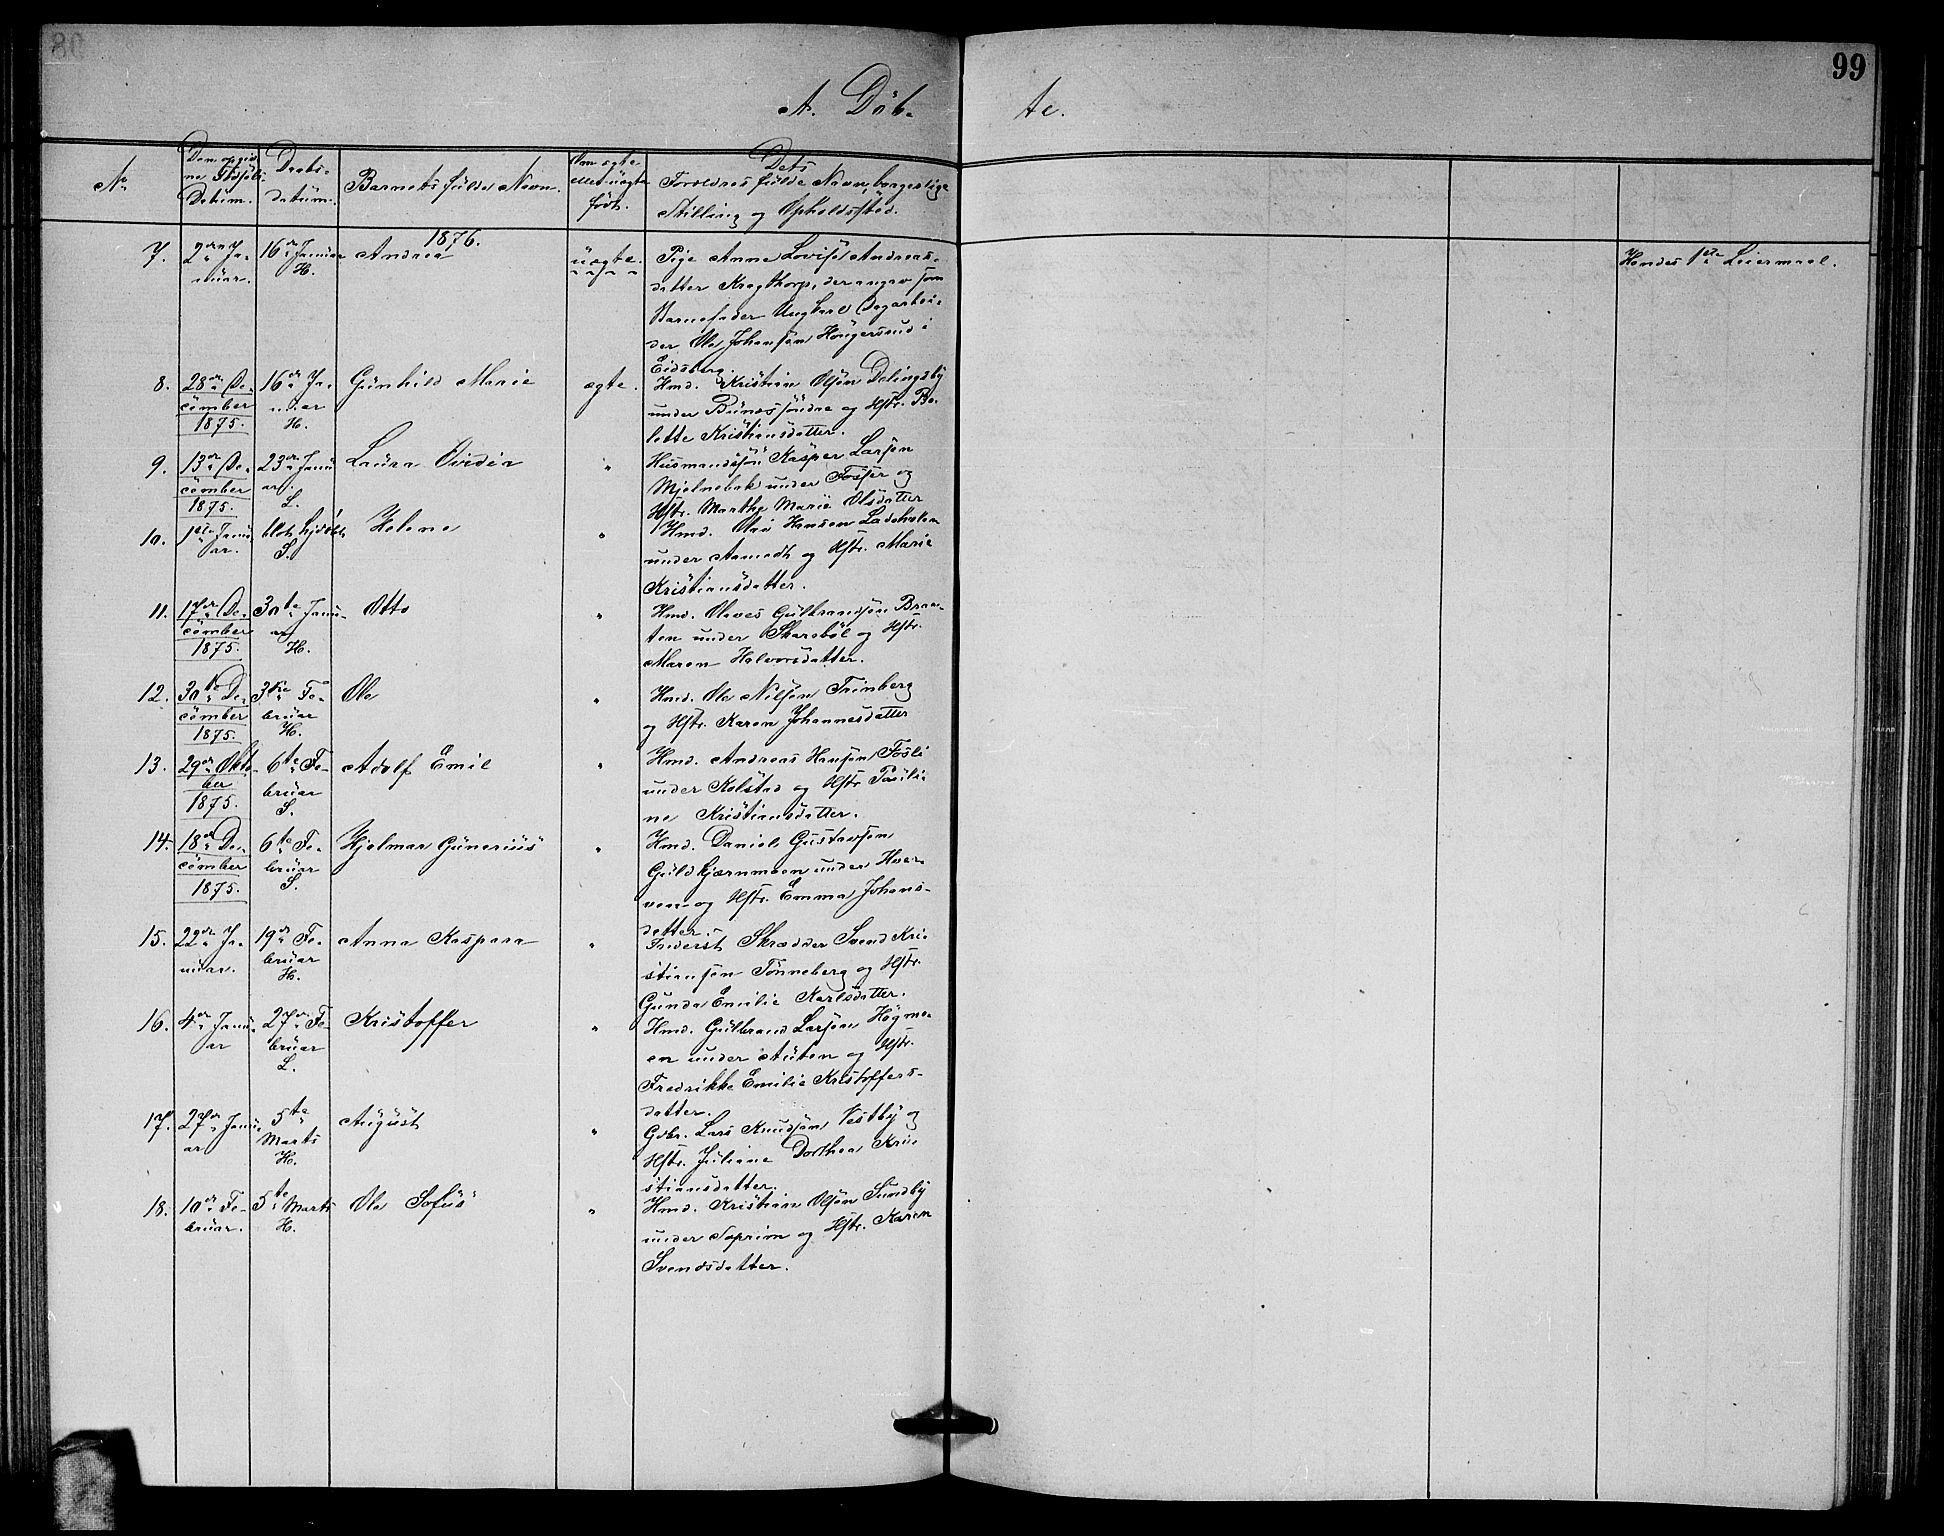 99
A. Döb. te.
No
Den opgiv
ne Fødsels-
Datum.
Daabs-
datum.
Barnets fulde Navn.
Om ægte
eller uægte
født.
Dets
Forældres fulde Navn, borgerlige
Stilling og Opholdssted.
1876.
7. 2den Ja-
nuar.
16de Januar
H.
Andrea
uægte.
Pige Anne Lovise Andreas-
datter Kragthorp, der angav som
Barnefader Ungkarl Dagarbei-
der Ole Johansen Haugersund i
Eidsberg.
Hendes 1ste Leiermaal.
8. 28de De-
cember
1875.
16de Ja-
nuar
H.
Gunhild Marie
ægte.
Hmd. Kristian Olsøn Delingsby
under Bunæs søndre og Hstr. Bo-
lette Kristiansdatter.
9. 13de De-
cember
1875.
23de Janu
ar.
L.
Laura Ovidia
"
Husmandssøn Kasper Larsøn
Mjølnebæk under Fosser og
Hstr. Marthe Marie Olsdatter
10. 1ste Janu
ar.
blot hjdøbt
S.
Helene
"
Hmd. Ole Hansen Ladehaken
under Aamodt og Hstr. Marie
Kristiansdatter.
11. 17de De-
cember
1875.
30te Janu-
ar
H.
Otto
"
Hmd. Olaves Gulbrandsøn Braa-
ten under Skaresböl og Hstr.
Maren Halvorsdatter.
12. 30te De-
cember
1875.
3die Fe-
bruar
H.
Ole
"
Hmd. Ole Nilsøn Trinberg
og Hstr. Karen Johannesdatter
13. 29de Okto-
ber
1875.
6te Fe-
bruar
S.
Adolf Emil
"
Hmd. Andreas Hansøn Fosli
under Kolstad og Hstr. Pauli-
ne Kristiansdatter.
14. 18de De-
cember
1875.
6te Fe-
bruar
S.
Hjelmar Gunerius
"
Hmd. Daniel Gustavsøn
Guldkjærnmoen under Huer-
veen og Hstr. Emma Johans-
datter.
15. 22de Ja-
nuar.
19de Fe-
bruar
H.
Anna Kaspara
"
Inderst Skrædder Svend Kri-
stiansøn Tønneberg og Hstr.
Gunda Emilie Karlsdatter.
16. 4de Janu-
ar
27de Fe-
bruar
L.
Kristoffer
"
Hmd. Gulbrand Larsøn Högmo-
en under Auten og Hstr.
Fredrikke Emilie Kristoffers-
datter.
17. 27de Janu-
ar
5te
Marts
H.
August
"
Gdbr. Lars Knudsøn Vestby og
Hstr. Juliane Dorthea Kri-
stiansdatter.
18. 10de Fe-
bruar.
5te Marts
H.
Ole Sofus
"
Hmd. Kristian Olsøn Sundby
under Naprim og Hstr. Karen
Svendsdatter.